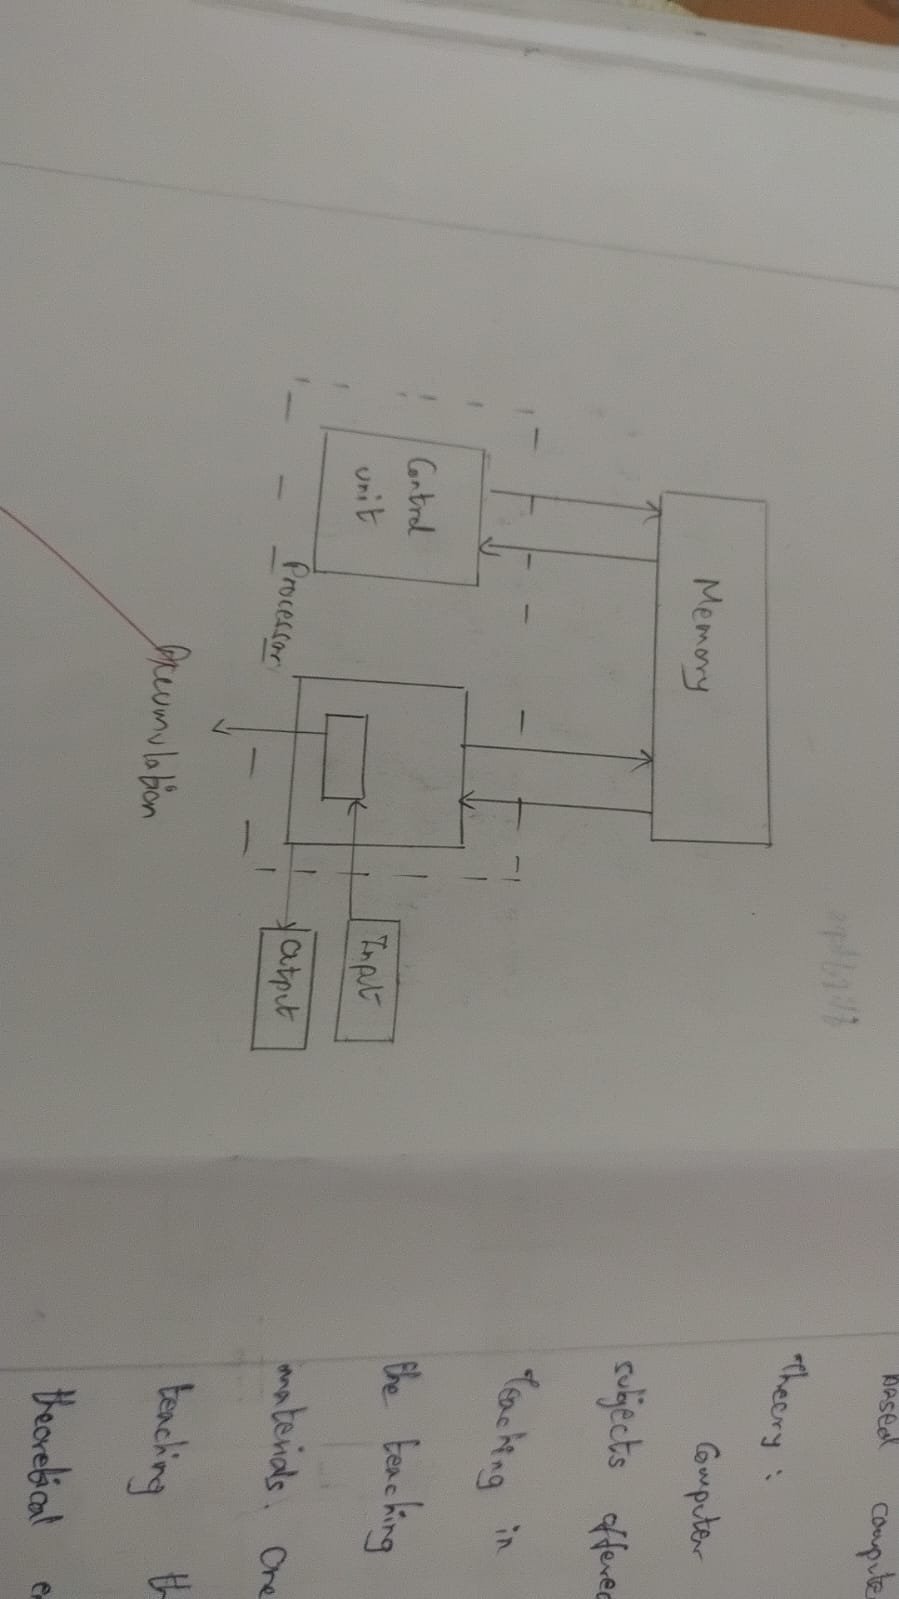 Memory
Control
unit
Processor
Accumulation
Input
Output
based compute
Theory :
Computer
subjects offered
teaching in
the teaching
materials. One
teaching th
theoretical e